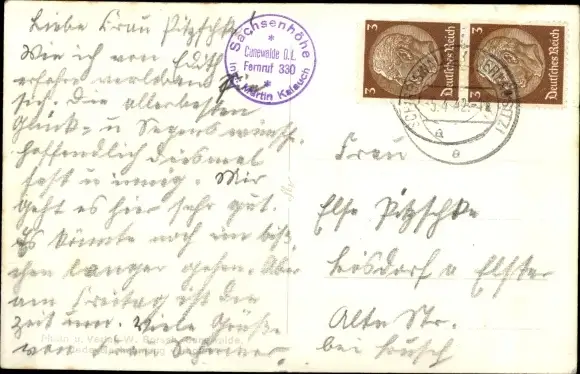 Liebe Frau Pitzschke
Wie ich von Ruth
erfahren verloben
sich. Die allerbesten
Glück- u Segenswünsche
hoffendlich diesmal
fest u innig. Mir
geht es hier sehr gut.
Es könnte noch ein biß-
chen langer gehen. Aber
am Freitag ist die
Zeit um. Viele Grüße
von
Sachsenhöhe
Cunewalde O.L.
Fernruf 330
Inh. Martin Kalauch
3 Deutsches Reich
3 Deutsches Reich
Frau
Else Pitzschke
a Elster
Alte Str.
bei